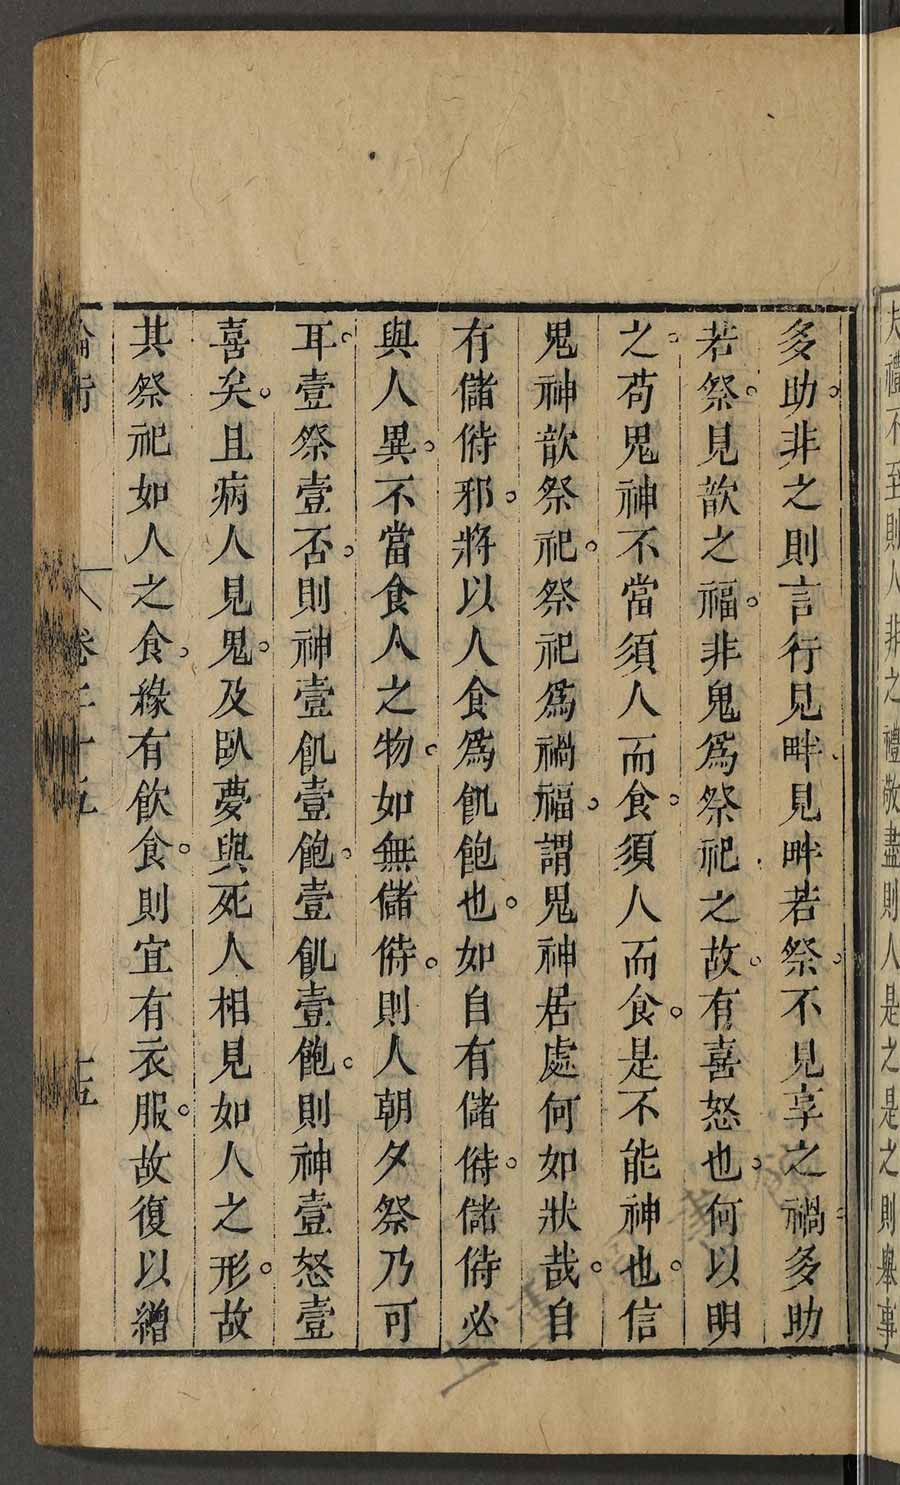 夫禮不至則人非之禮敬盡則人是之是之則舉事
多助。非之則言行見畔、見畔若祭。不見享之禍、多助
若祭。見歆之福。非鬼爲祭祀之故。有喜怒也。何以明
之。苟鬼神不當須人而食。須人而食。是不能神也。信
鬼神歆祭祀。祭祀爲禍福。謂鬼神居處何如狀哉。自
有儲偫邪。將以人食爲飢飽也。如自有儲偫。儲偫必
與人異。不當食人之物。如無儲偫。則人朝夕祭乃可
耳。壹祭壹否。則神壹飢壹飽。壹飢壹飽。則神壹怒壹
喜矣。且病人見鬼。及臥夢與死人相見如人之形。故
其祭祀如人之食。緣有飲食。則宜有衣服。故復以繒
論衡 卷二十五 十五